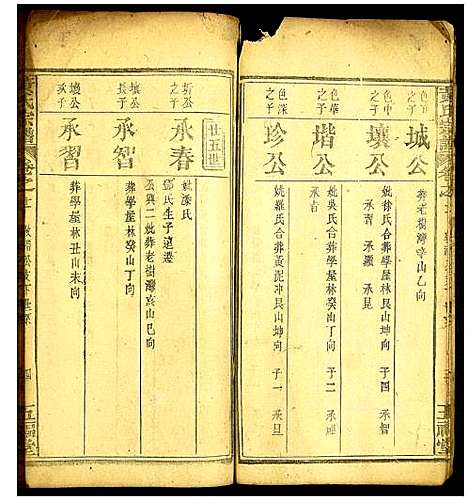 城公
葬老樹灣辛山乙向
色中之子
壞公
妣徐氏合葬學屋林癸山丁向 子四 承智
承習 承 承昆
色華之子
堦公
妣吳氏合葬學屋林癸山丁向 子二 承
色深之子
珍公
妣羅氏合葬黃泥冲艮山坤向 子一 承旦
廿五世
圻公之子
承春
妣 氏
鄧氏生子遠遷
公與二妣葬老樹灣亥山巳向
壞公長子
承智
葬學屋林癸山丁向
壞公次子
承習
葬學屋林丑山未向
氏宗譜
五福堂